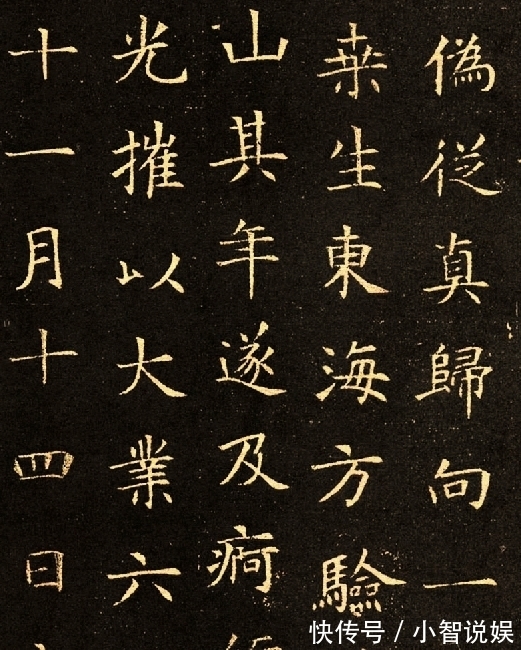 偽従真歸向一
桒生東海方驗
山其年遂及痾
光摧以大業六
十一月十四日
快传号/小智说娱